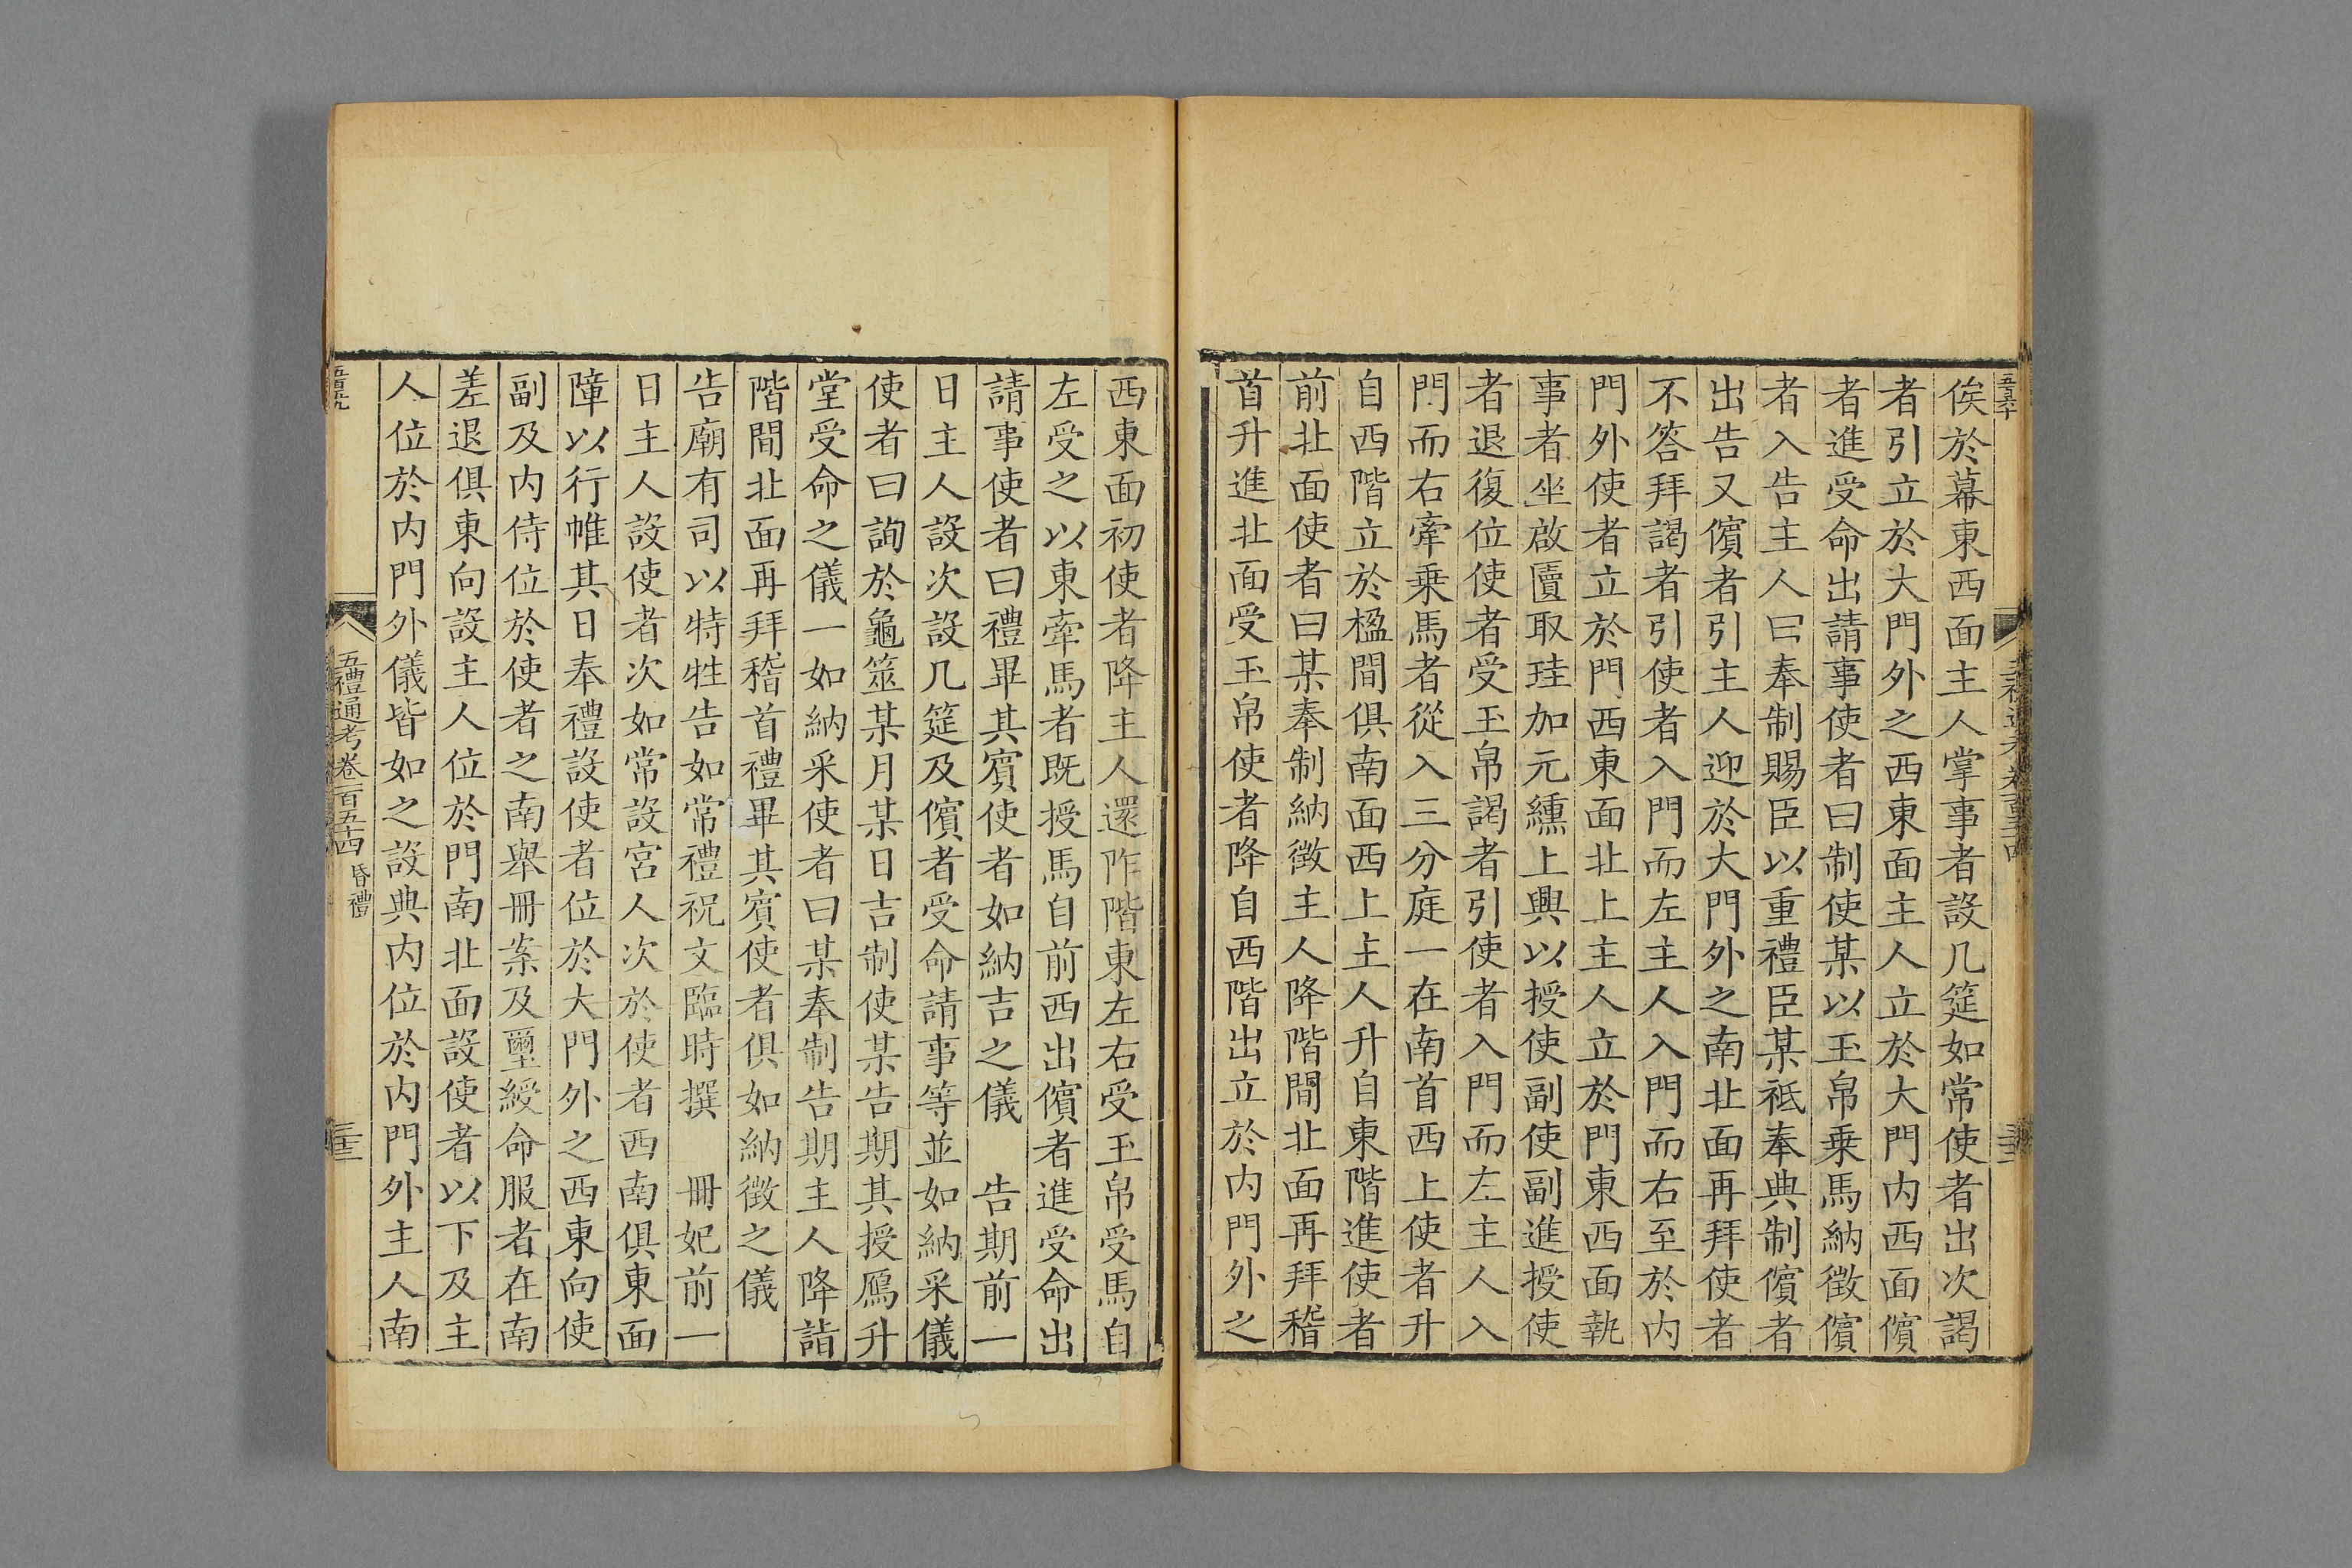 俟於幕東西面主人掌事者設几筵如常使者出次謁
者引立於大門外之西東面主人立於大門内西面儐
者進受命出請事使者曰制使某以玉帛乗馬納徵儐
者入告主人曰奉制賜臣以重禮臣某祗奉典制儐者
出告又儐者引主人迎於大門外之南北面再拜使者
不答拜謁者引使者入門而左主人入門而右至於内
門外使者立於門西東面北上主人立於門東西面執
事者坐啟匵取珪加元纁上興以授使副使副進授使
者退復位使者受玉帛謁者引使者入門而左主人入
門而右牽乗馬者從入三分庭一在南首西上使者升
自西階立於楹間俱南面西上主人升自東階進使者
前北面使者曰某奉制納徵主人降階間北面再拜稽
首升進北面受玉帛使者降自西階出立於内門外之
西東面初使者降主人還阼階東左右受玉帛受馬自
左受之以東牽馬者既授馬自前西出儐者進受命出
請事使者曰禮畢其賓使者如納吉之儀 告期前一
日主人設次設几筵及儐者受命請事等並如納采儀
使者曰詢於龜筮某月某日吉制使某告期其授鴈升
堂受命之儀一如納采使者曰某奉制告期主人降詣
階間北面再拜稽首禮畢其賓使者俱如納徵之儀
告廟有司以特牲告如常禮祝文臨時撰 冊妃前一
日主人設使者次如常設宮人次於使者西南俱東面
障以行帷其日奉禮設使者位於大門外之西東向使
副及内侍位於使者之南舉冊案及璽綬命服者在南
差退俱東向設主人位於門南北面設使者以下及主
人位於内門外儀皆如之設典内位於内門外主人南
五禮通考卷一百五十四 昏禮